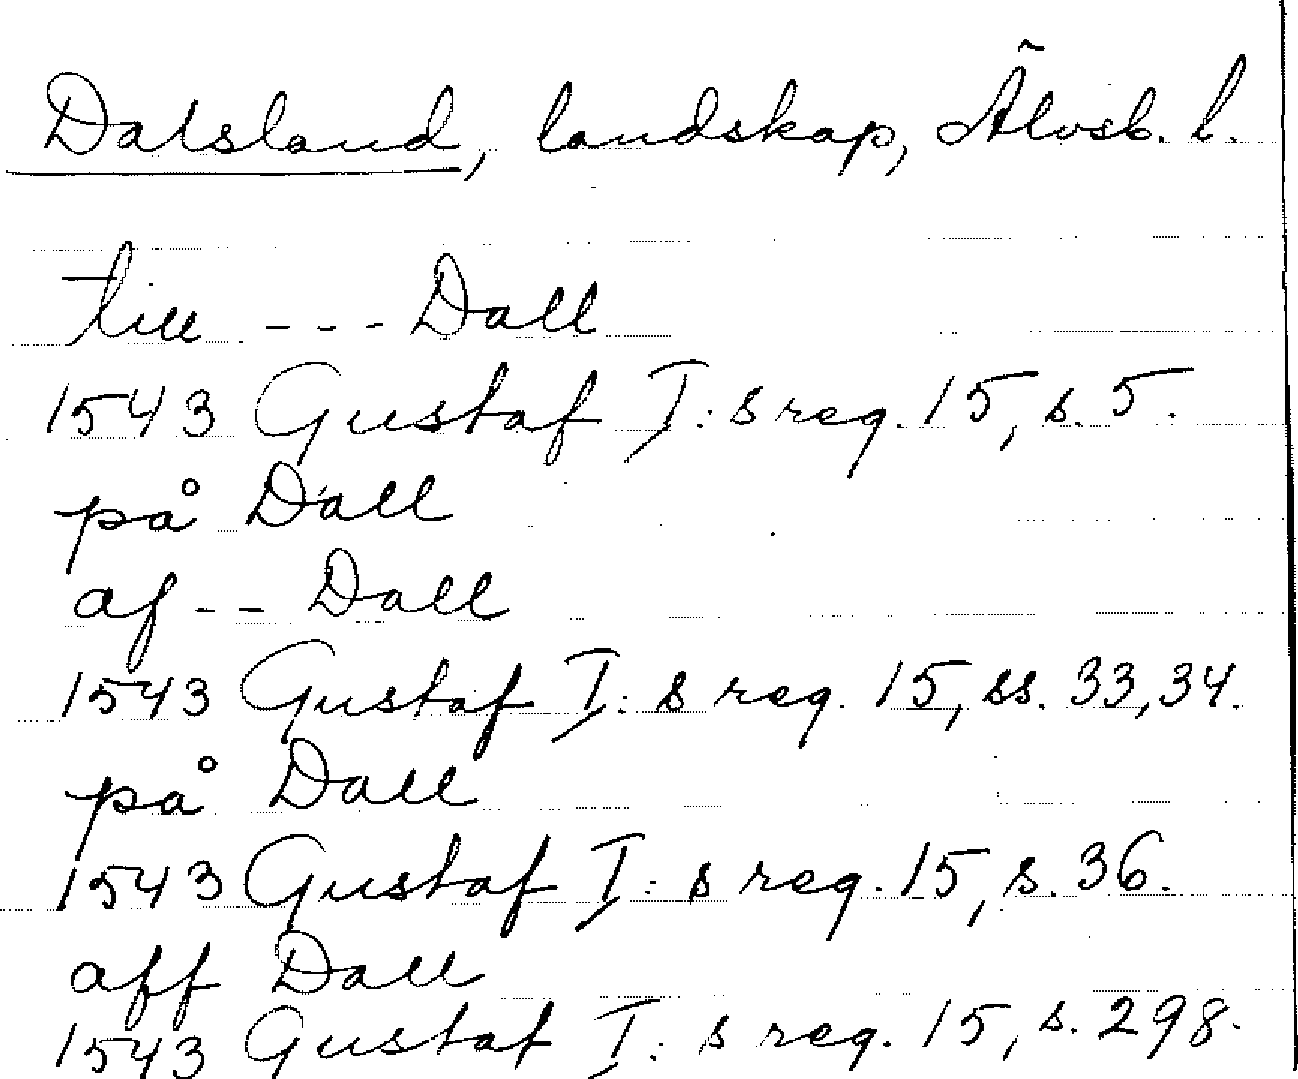 Dalsland, landskap, Älvsb. l.
till --- Dall
1543 Gustaf I:s reg. 15, s. 5.
på Dall
af -- Dall
1543 Gustaf I:s reg. 15, ss. 33,34.
på Dall
1543 Gustaf I:s reg. 15, s. 36.
aff Dall
1543 Gustaf I:s reg. 15, s. 298.